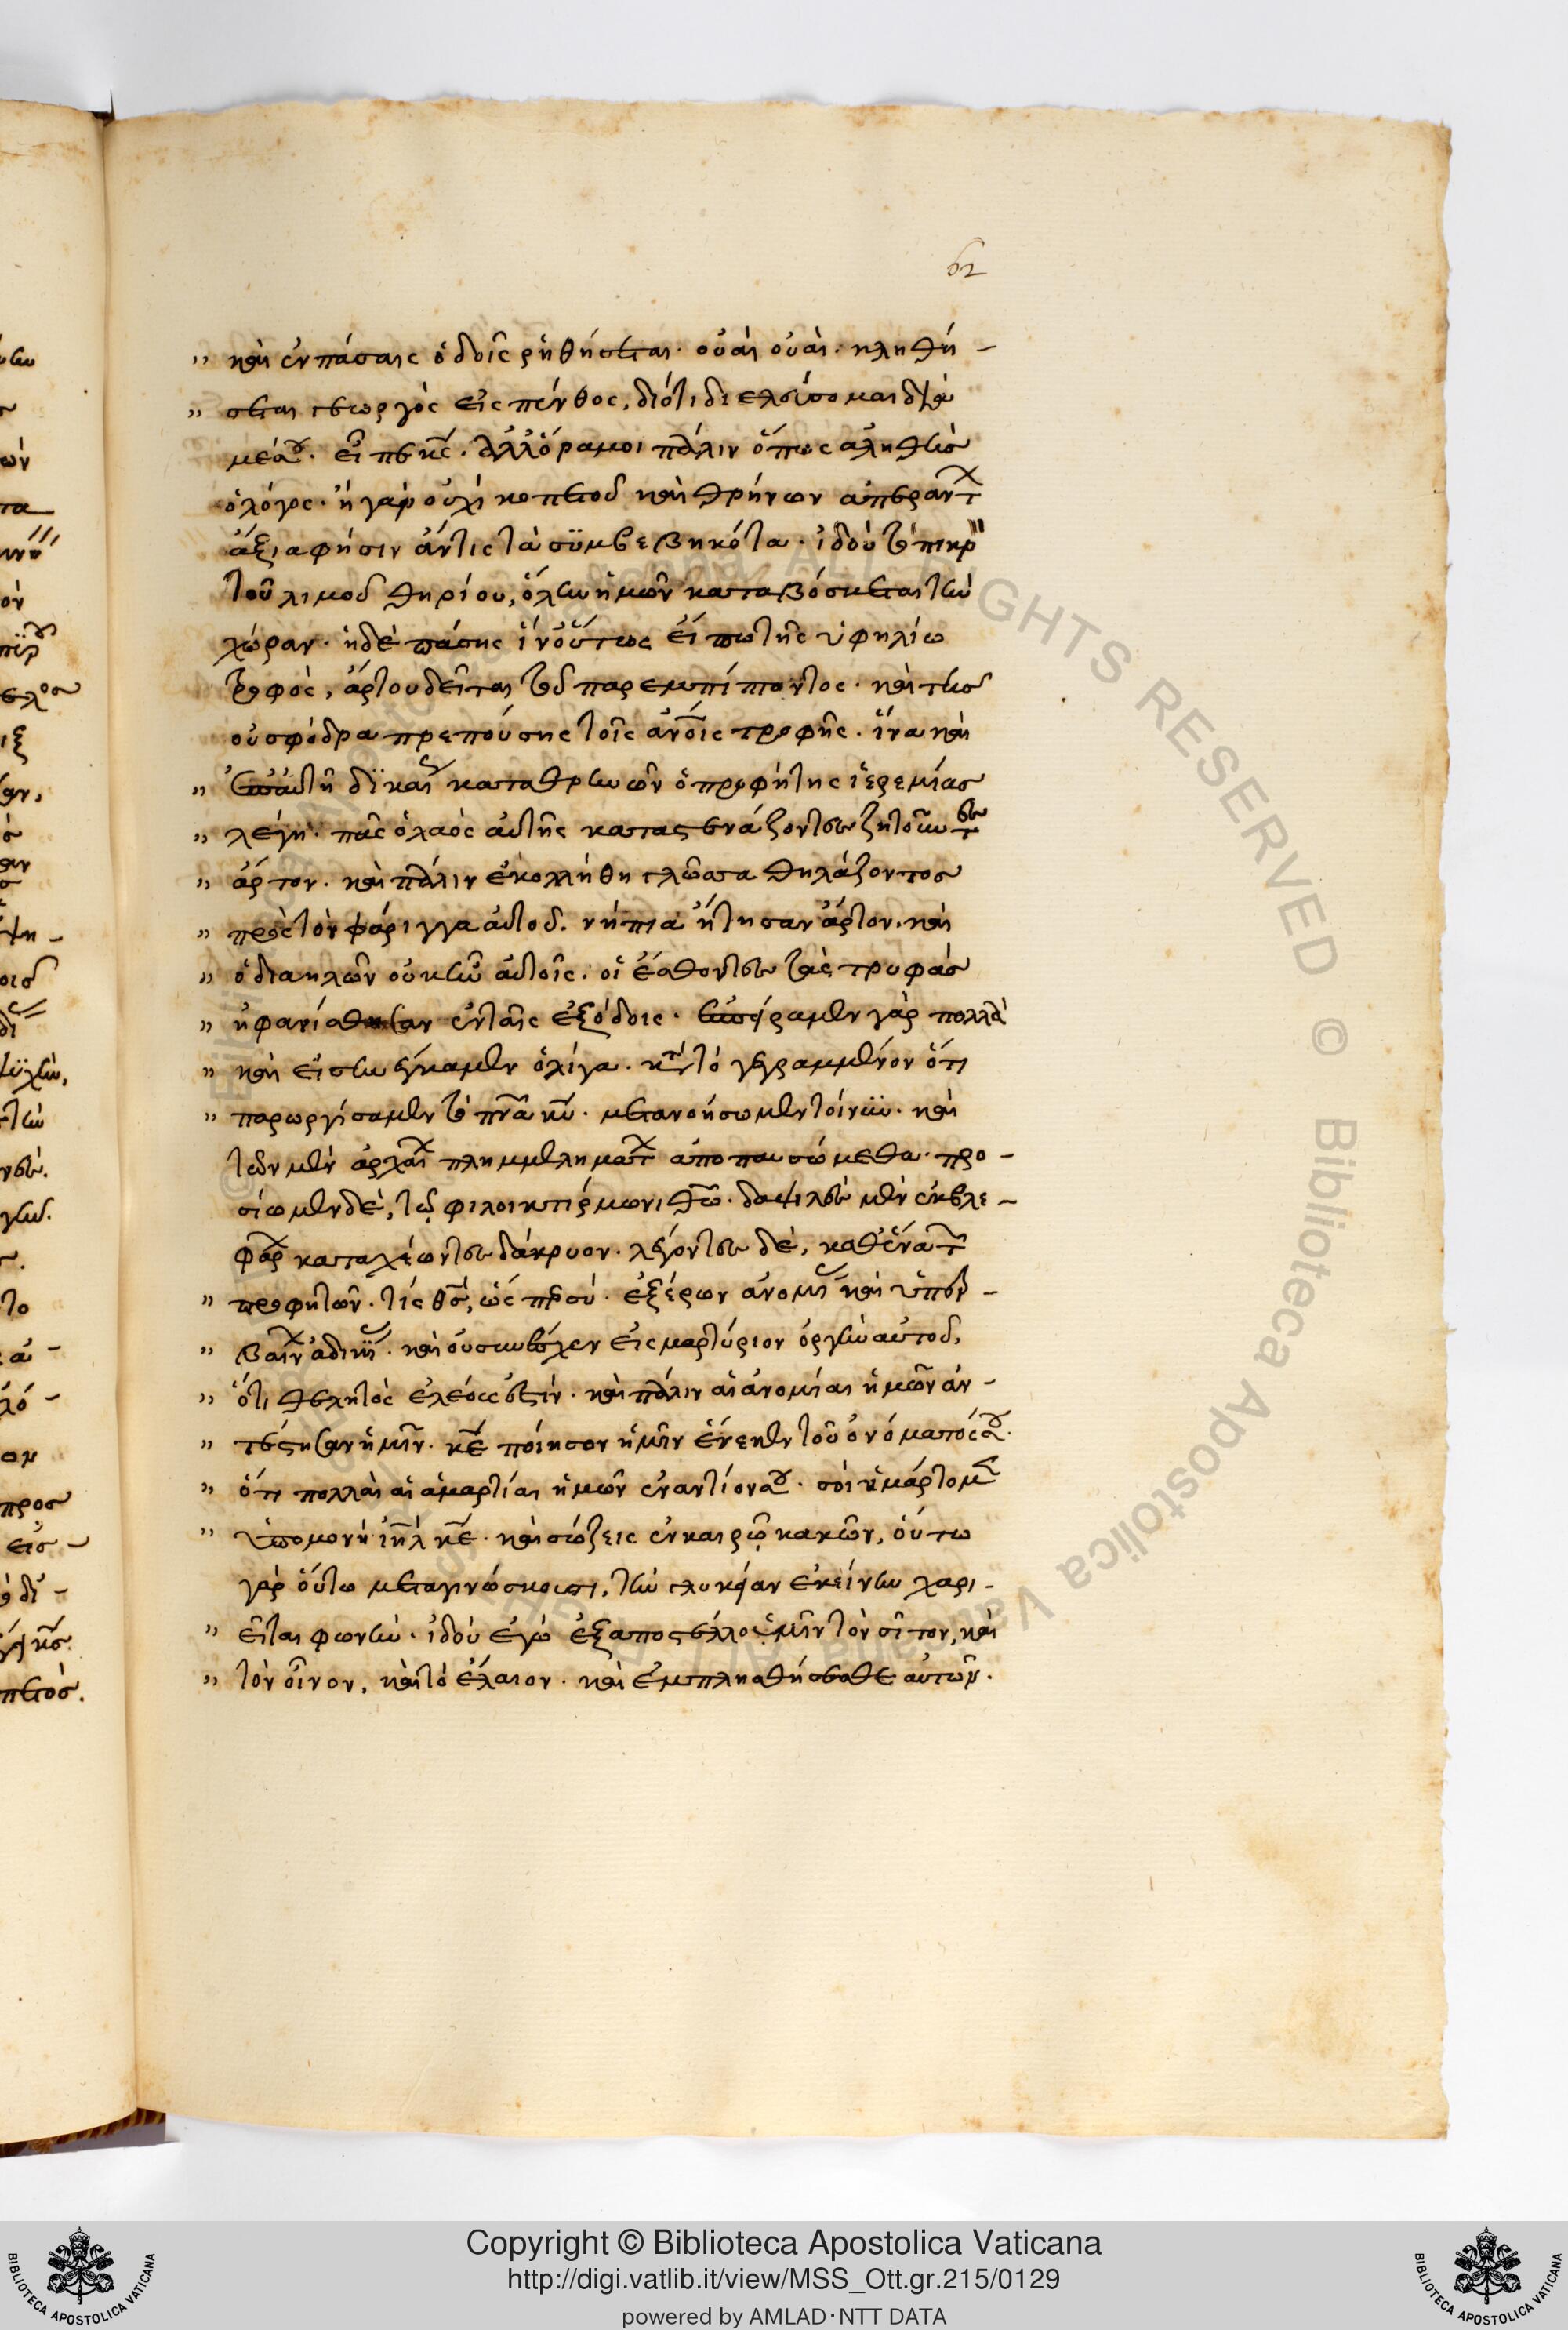 62
καὶ ἐν πάσαις ὁδοῖς ῥηθήσεται· οὐαὶ οὐαί· κληθή-
σεται γεωργὸς εἰς πένθος, διότι διελεύσομαι διὰ
μέσου. εἶπε κς. ἀλλ' ὅρα μοι πάλιν ὅπως ἀληθὴς
ὁ λόγος. ἢ γὰρ οὐχὶ κοπετοῦ καὶ θρήνων
ἄξια φήσιν ἄν τις τὰ συμβεβηκότα. ἰδοὺ τὸ πικρὸν
τοῦ λιμοῦ θηρίον, ὅλην ἡμῶν καταβόσκεται τὴν
χώραν. ἡ δὲ πάσης ἵν' οὕτως εἴπω τῆς ὑφηλίω
τροφὸς, ἄρτου δεῖται τοῦ παρεμπίπτοντος. καὶ τῆς
οὐ σφόδρα πρεπούσης τοῖς ἀνοις τροφῆς. ἵνα καὶ
ἐπ' αὐτῆ δικαίως καταθρηνῶν ὁ προφήτης ἱερεμίας
λέγη. πᾶς ὁ λαὸς αὐτῆς καταστενάζοντες ζητοῦντες
ἄρτον. καὶ πάλιν ἐκολλήθη γλῶσσα θηλάζοντος
πρὸς τὸν φάριγγα αὐτοῦ. νήπια ἤτησαν ἄρτον. καὶ
ὁ διακλῶν οὐκ ἦν αὐτοῖς. οἱ ἔσθοντες τὰς τρυφὰς
ἠφανίσθησαν ἐν ταῖς ἐξόδοις. ἐσπείραμεν γὰρ πολλὰ
καὶ εἰσηνέγκαμεν ὀλίγα. κατὰ τὸ γεγραμμένον ὅτι
παρωργίσαμεν τὸ πνα κυ. μετανοήσωμεν τοίνυν. καὶ
τῶν μὲν ἀρχαίων πλημμελημάτων ἀποπαυσώμεθα. προ-
σίωμεν δὲ, τῷ φιλοικτίρμονι θω. δαψιλὲς μὲν ἐκ βλε-
φάρων καταχέωντες δάκρυον. λέγοντες δὲ, καθ' ἕνα τῶν
προφητῶν. τίς θς, ὡς περ σύ. ἐξέρων ἀνομίας καὶ ὑπερ-
βαίνων ἀδικίας. καὶ οὐ συνέσχεν εἰς μαρτύριον ὀργὴν αὐτοῦ,
ὅτι θελητὸς ἐλέους ἐστίν. καὶ πάλιν αἱ ἀνομίαι ἡμῶν ἀν-
τέστησαν ἡμῖν. κε ποίησον ἡμῖν ἕνεκεν τοῦ ὀνόματός σου.
ὅτι πολλαὶ αἱ ἁμαρτίαι ἡμῶν ἐναντίον σου. σοὶ ἡμάρτομεν
ὑπομονὴ ιηλ κε. καὶ σώζεις ἐν καιρῷ κακῶν, οὕτω
γὰρ οὕτω μεταγινώσκουσι, τὴν γλυκεῖαν ἐκείνην χαρι-
εῖται φωνήν. ἰδοὺ ἐγὼ ἐξαποστέλλω ὑμῖν τὸν σῖτον, καὶ
τὸν οἶνον, καὶ τὸ ἔλαιον. καὶ ἐμπλησθήσεσθε αὐτῶν.
© Biblioteca Apostolica Vaticana ALL RIGHTS RESERVED
Copyright © Biblioteca Apostolica Vaticana
http://digi.vatlib.it/view/MSS_Ott.gr.215/0129
powered by AMLAD·NTT DATA
BIBLIOTECA APOSTOLICA VATICANA
BIBLIOTECA APOSTOLICA VATICANA